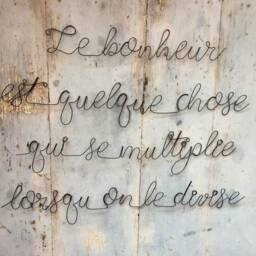 Le bonheur
est quelque chose
qui se multiplie
lorsqu on le divise